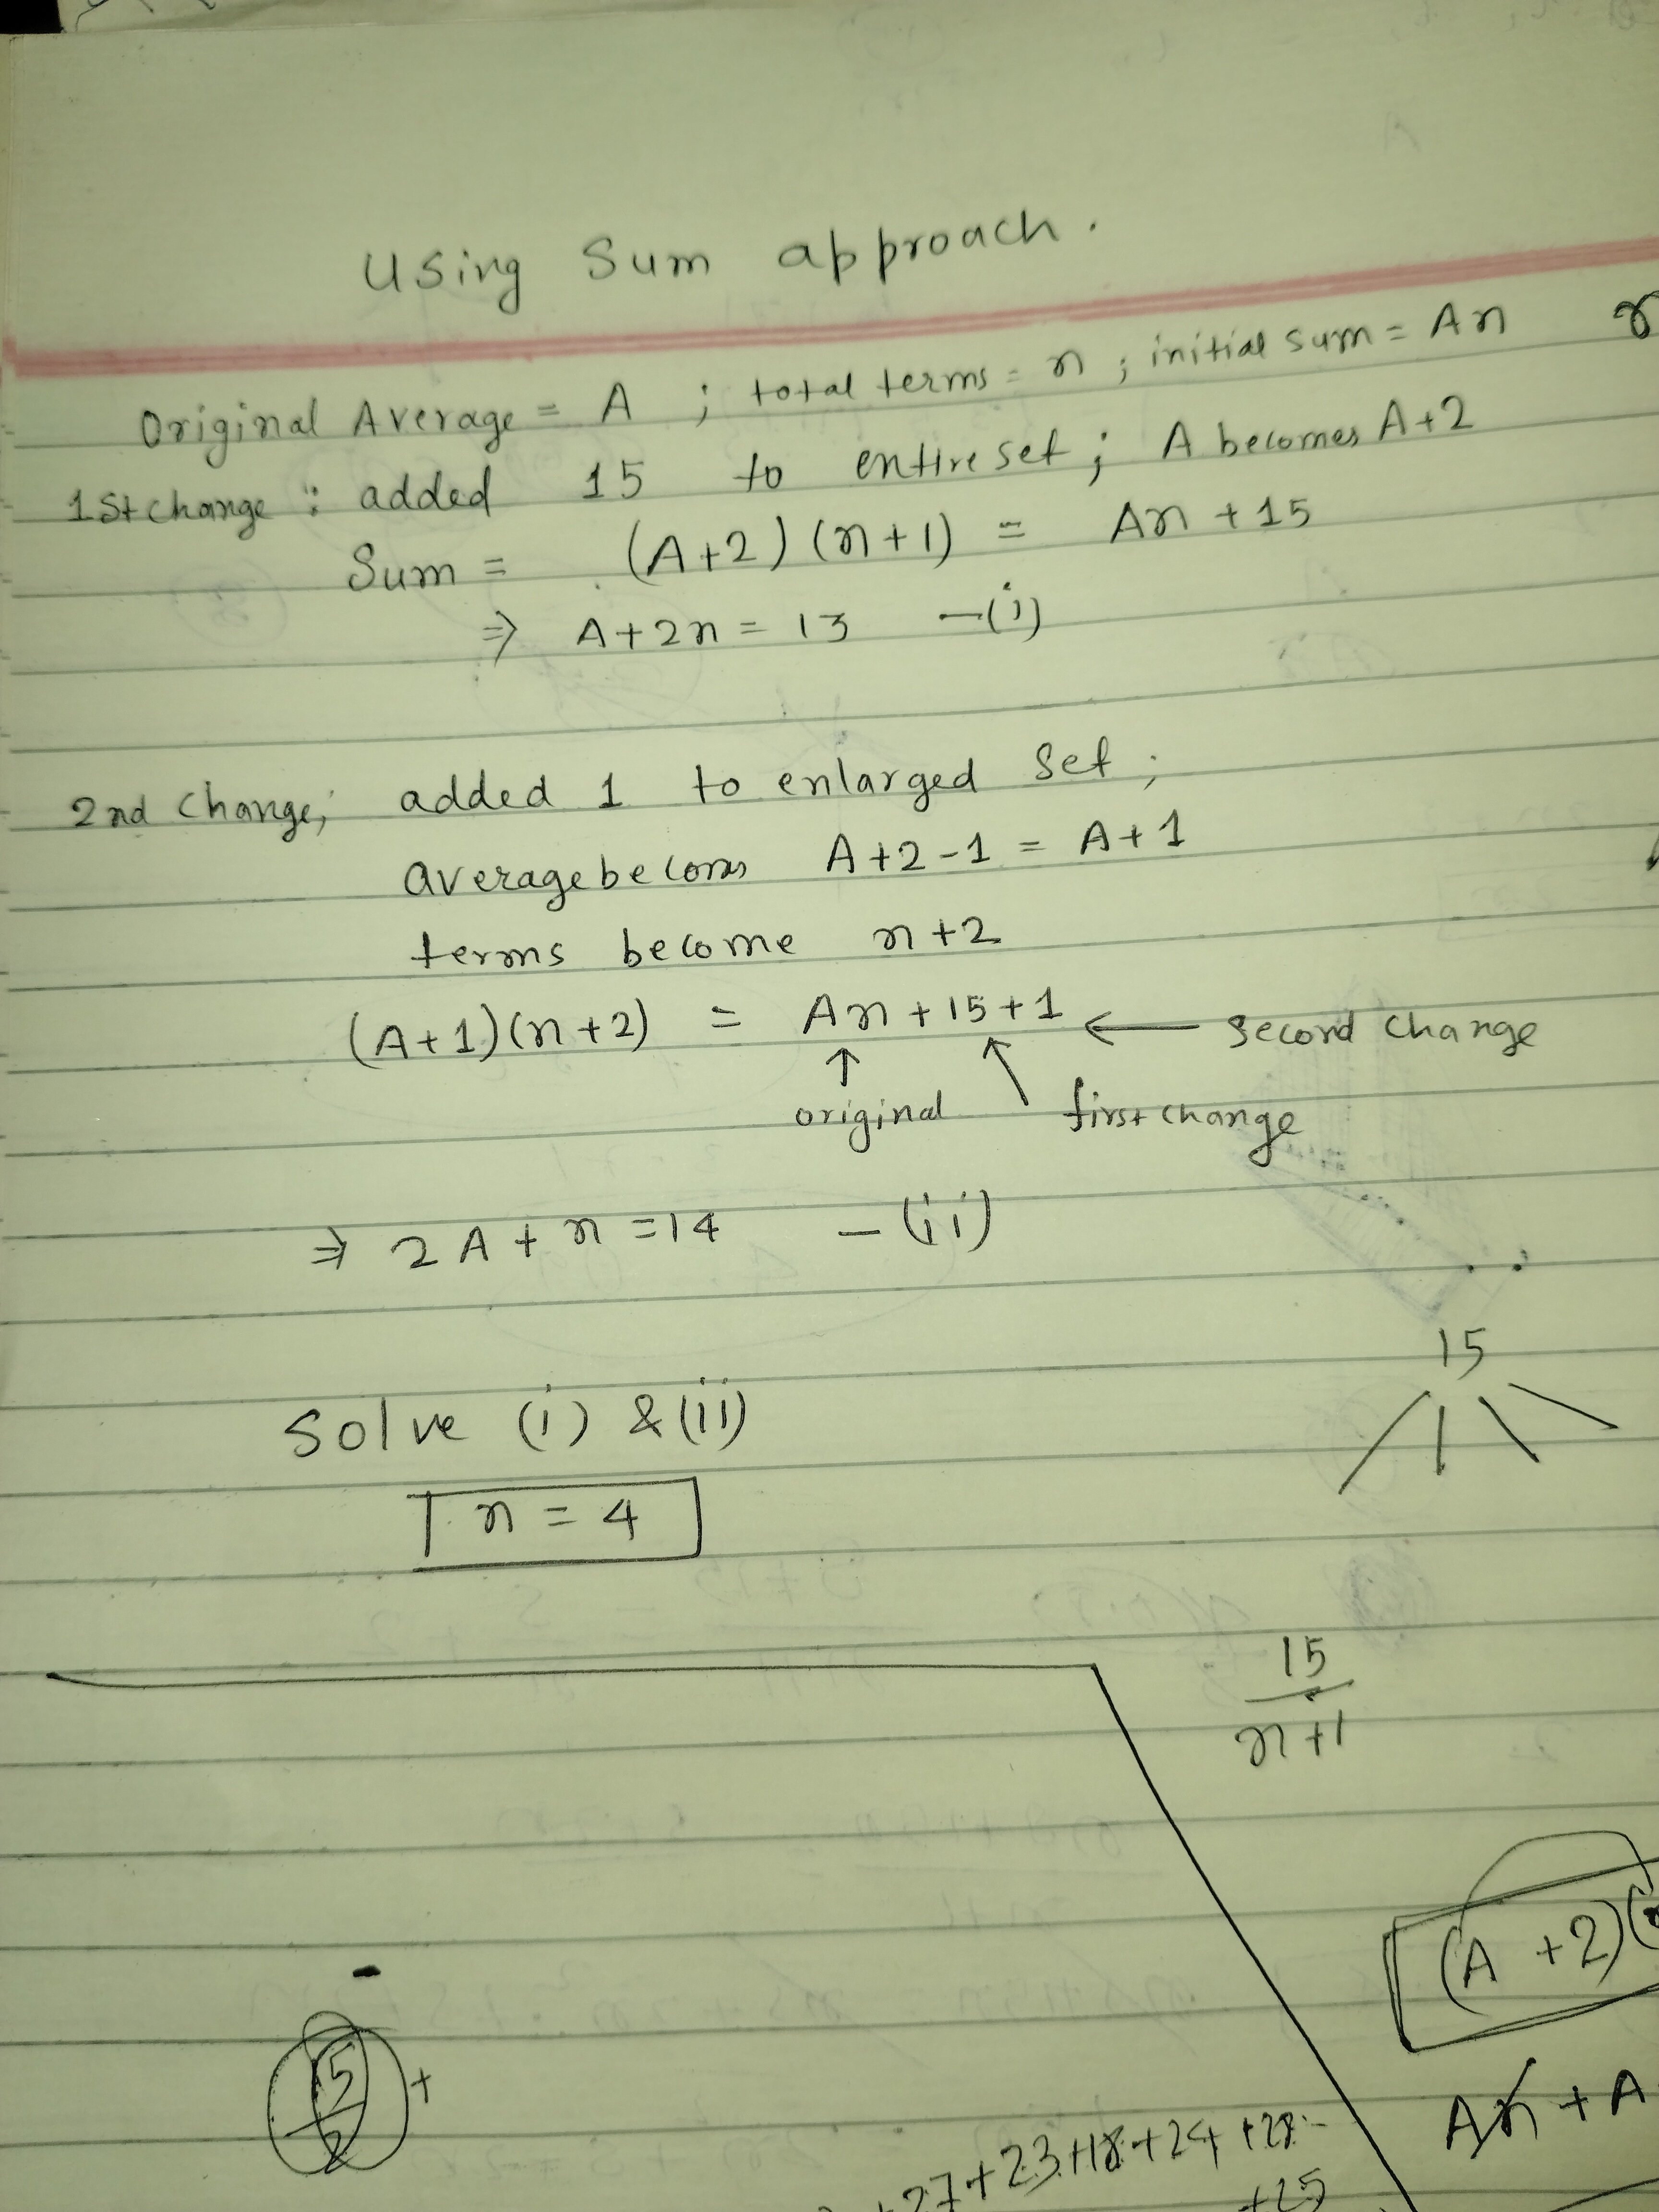 Using Sum approach.
Original Average = A ; total terms = n ; initial sum = An
1st change : added 15 to entire set ; A becomes A+2
Sum = (A+2) (n+1) = An + 15
⇒ A+2n = 13 —(i)
2nd Change; added 1 to enlarged Set ;
average becoms A+2-1 = A+1
terms become n+2
(A+1)(n+2) = An + 15 + 1 ← Second change
↑ ↑
original first change
⇒ 2A + n = 14 — (ii)
15
Solve (i) & (ii)
n = 4
15
n+1
(A +2)(
15
2
+
An + A
+27+23+18+24+28
+25